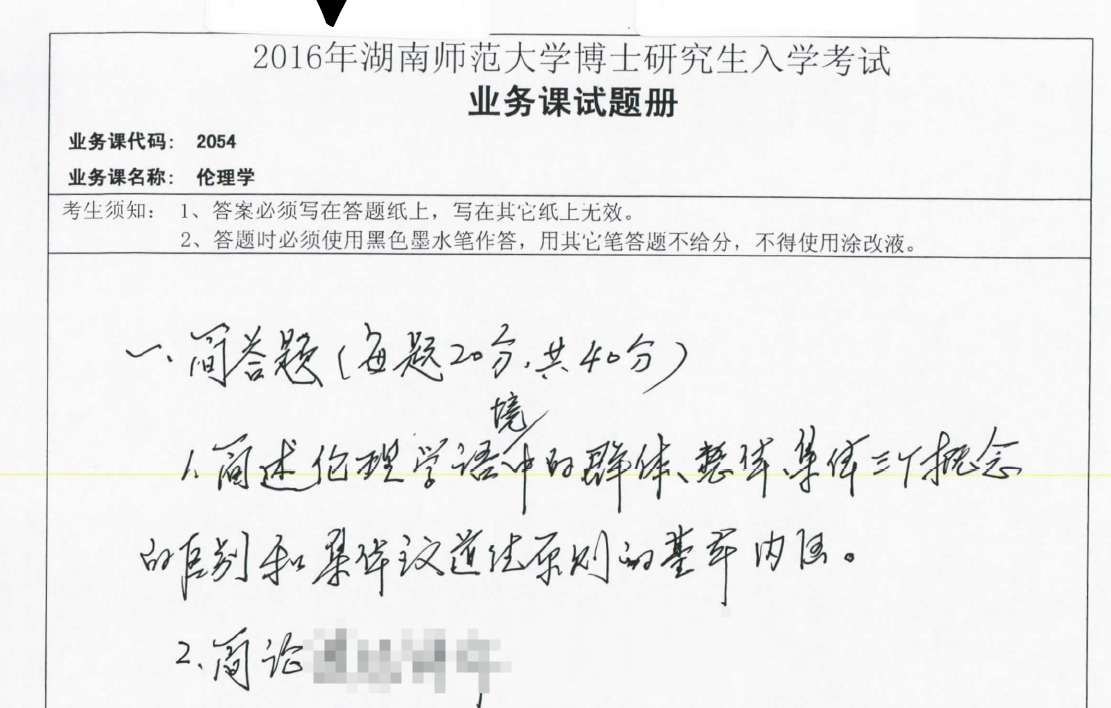 2016年湖南师范大学博士研究生入学考试
业务课试题册
业务课代码： 2054
业务课名称： 伦理学
考生须知： 1、答案必须写在答题纸上，写在其它纸上无效。
2、答题时必须使用黑色墨水笔作答，用其它笔答题不给分，不得使用涂改液。
一、简答题（每题20分，共40分）
1、简述伦理学语境中的群体、整体、集体三个概念
的区别和集体主义道德原则的基本内涵。
2、简论